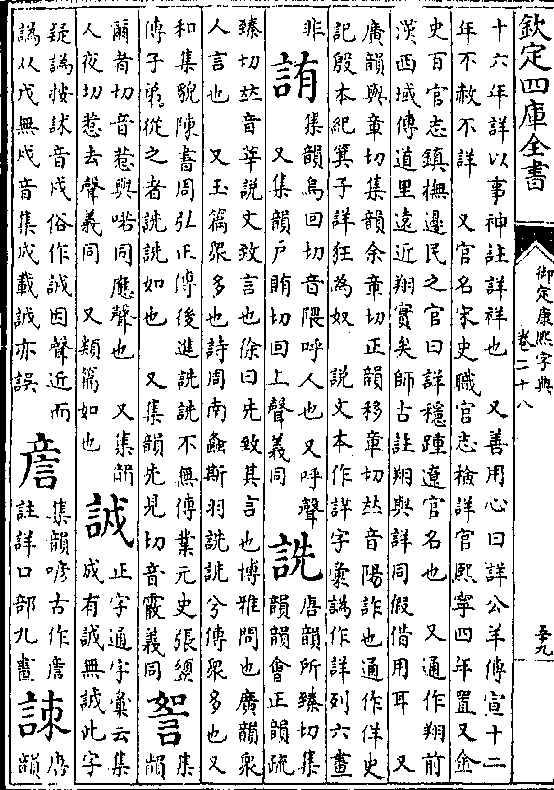 欽定四庫全書
御定康熙字典
卷二十八
十六年詳以事神註詳祥也　又善用心曰詳公羊傳宣十二
年不赦不詳　又官名宋史職官志檢詳官熙寧四年置又金
史百官志鎮撫邊民之官曰詳穩踵遼官名也　又通作翔前
漢西域傳道里遠近翔實矣師古註翔與詳同假借用耳　又
廣韻與章切集韻余章切正韻移章切𠀤音陽詐也通作佯史
記殷本紀箕子詳狂為奴　說文本作詳字彙譌作詳列六畫
非
詴
集韻烏回切音隈呼人也又呼聲
又集韻戶賄切回上聲義同
詵
唐韻所臻切集
韻韻會正韻疏
臻切𠀤音莘說文致言也徐曰先致其言也博雅問也廣韻衆
人言也　又玉篇衆多也詩周南螽斯羽詵詵兮傳衆多也又
和集貌陳書周弘正傳後進詵詵不無傳業元史張須
傳子弟從之者詵詵如也　又集韻先見切音霰義同
集
韻
爾者切音惹與喏同應聲也　又集韻
人夜切惹去聲義同　又類篇如也
誠
正字通字彙云集
成有誠無誠此字
疑譌按音戍俗作誠因聲近而
譌从戊無戍音集成載誠亦誤
詹
集韻唸古作詹
註詳口部九畫
諫
唐
韻